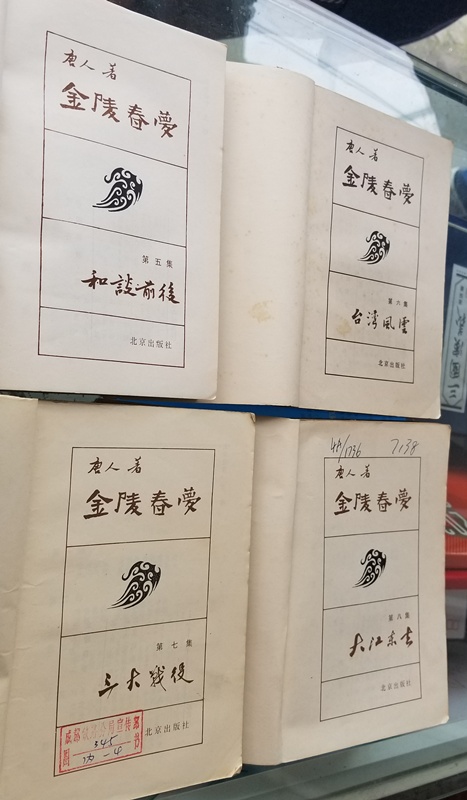 唐人著
金陵春夢
第五集
和談前後
北京出版社
唐人著
金陵春夢
第六集
台灣風雲
北京出版社
唐人著
金陵春夢
第七集
三大戰役
北京出版社
345
功-4
7138
唐人著
金陵春夢
第八集
大江东去
北京出版社
三國演